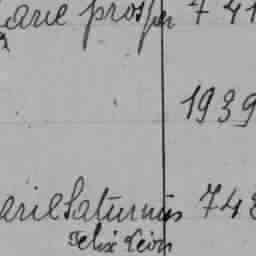 arie prosper 7 41
1939
arie Saturnin 748
Felix Léon